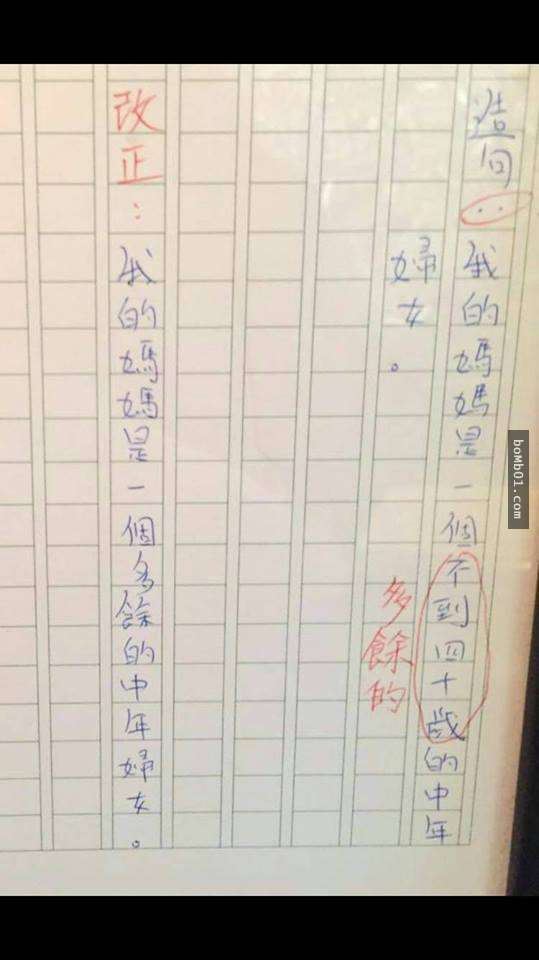 造句：我的媽媽是一個不到四十歲的中年
婦女。
多餘的
改正：我的媽媽是一個多餘的中年婦女。
boMb01.com